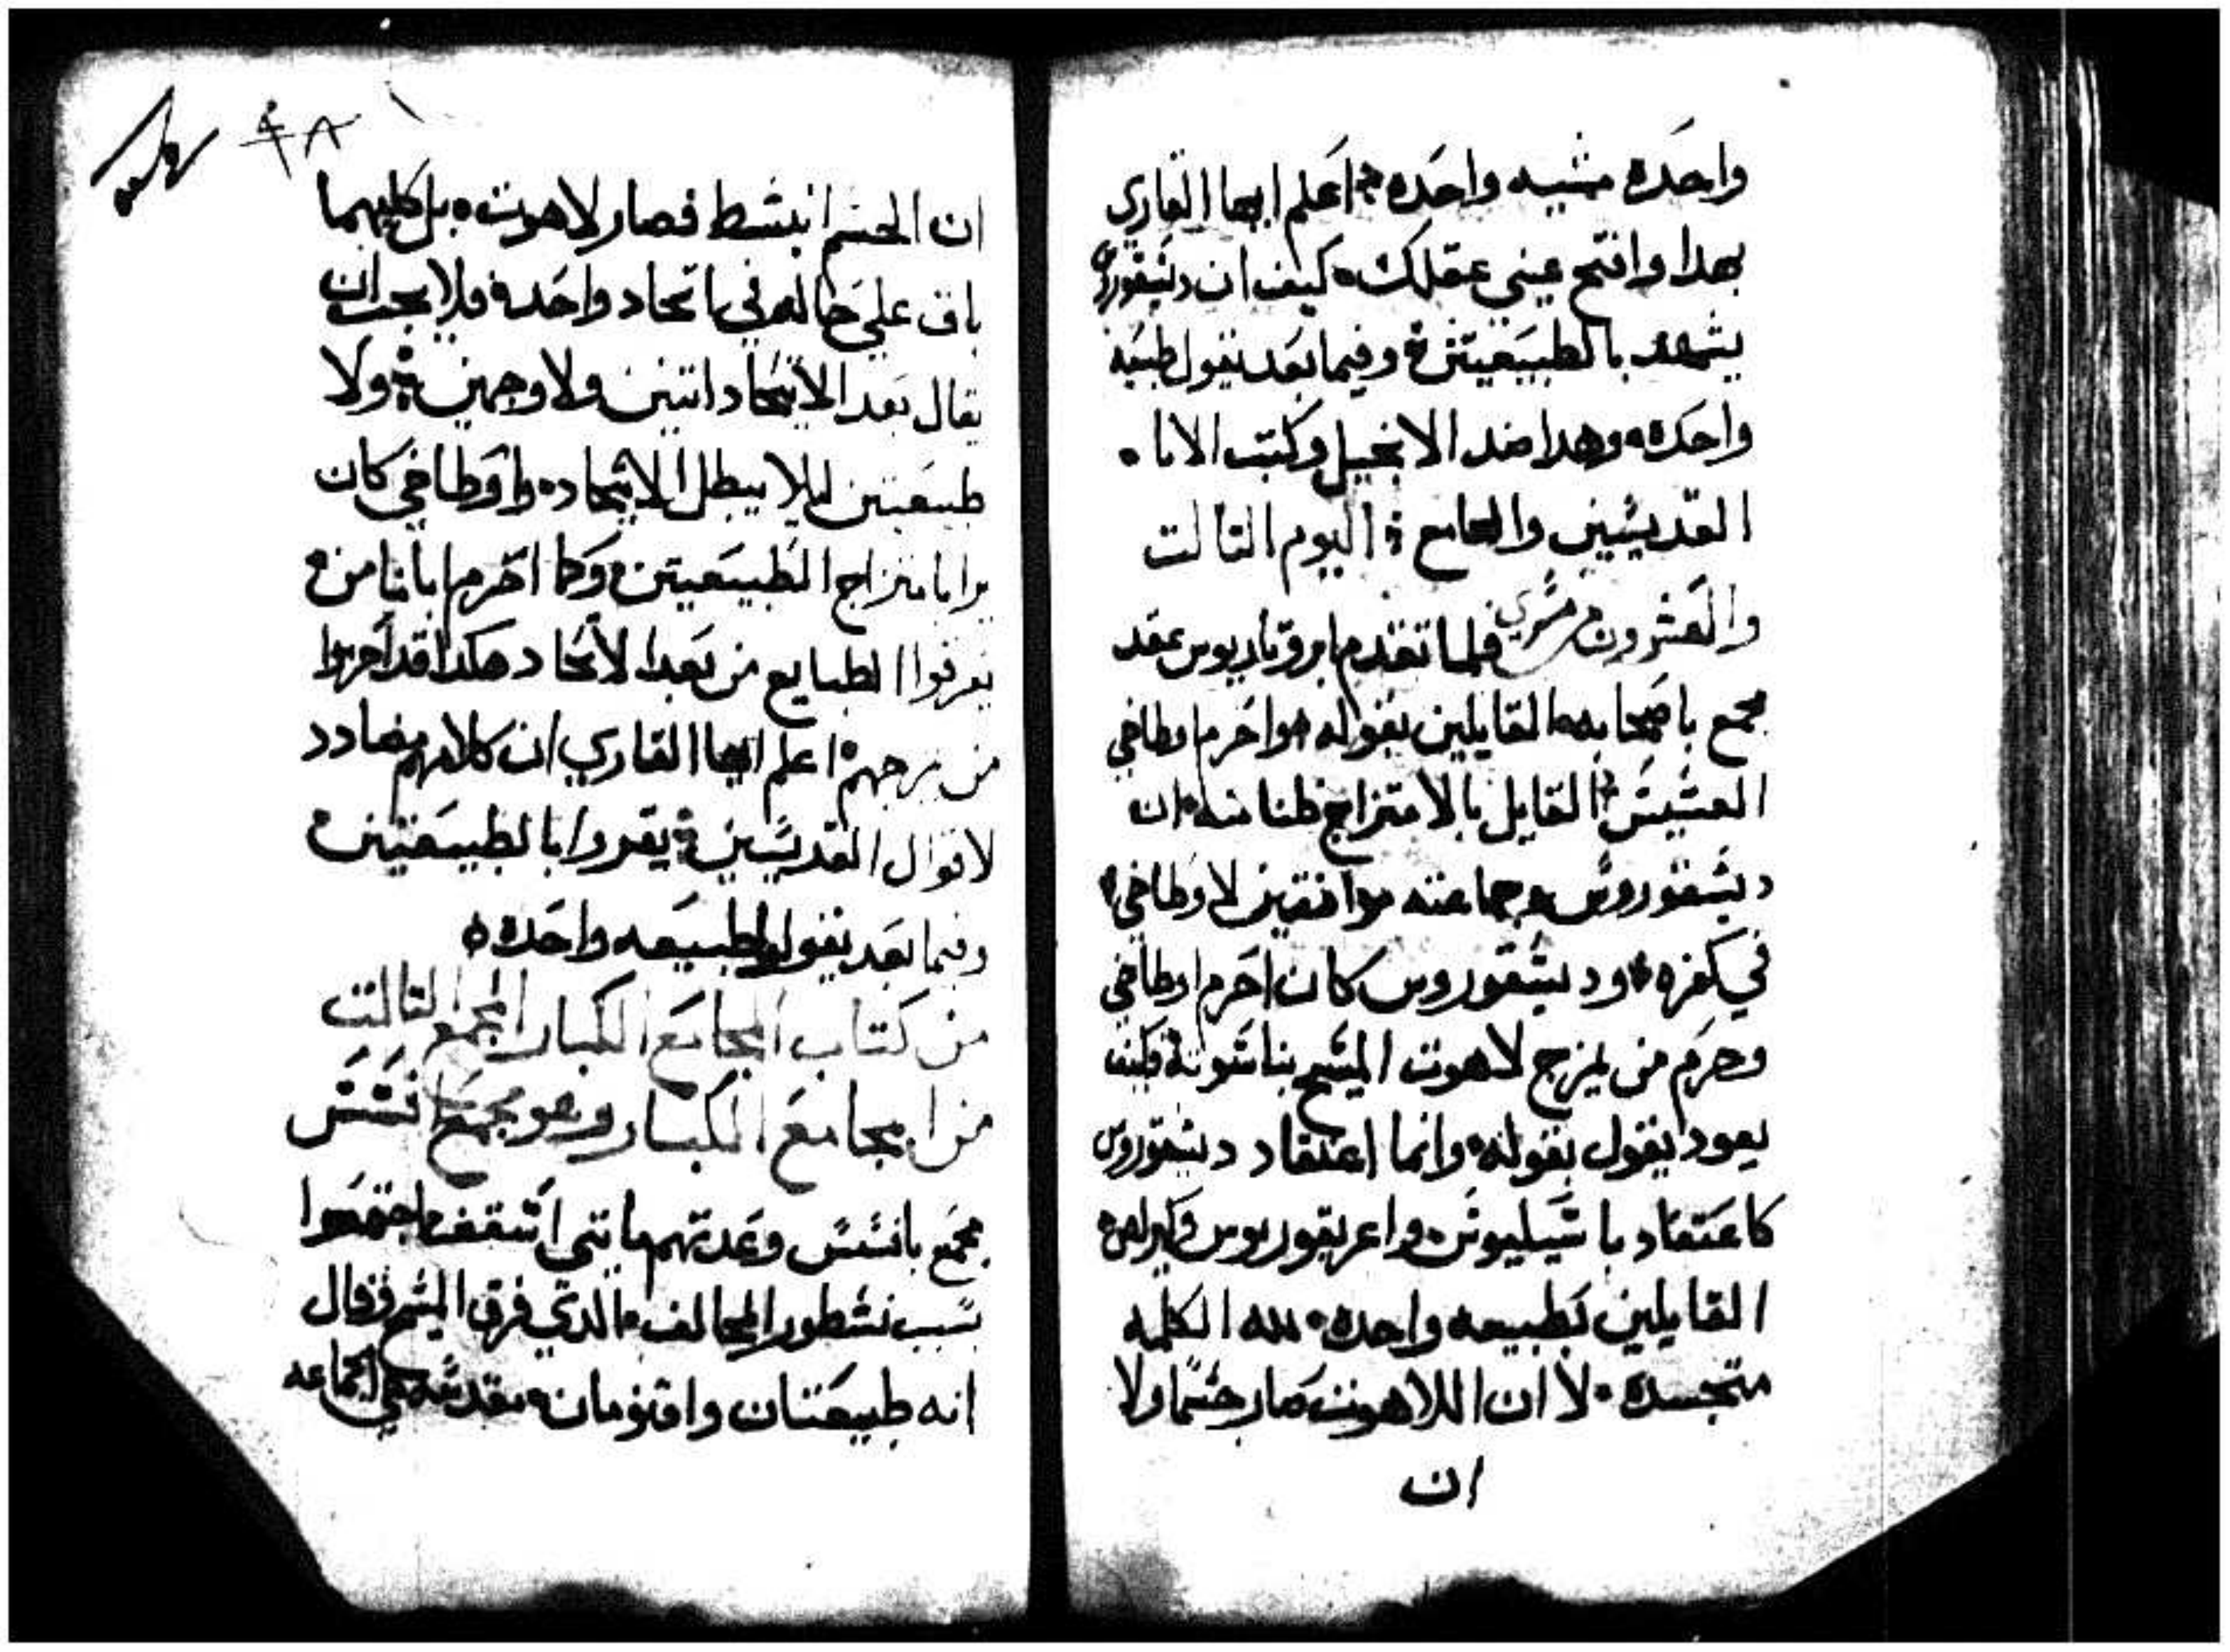 واحده مشيه واحده اعلم ايها القاري
بهدا وافتح عيني عقلك كيف ان ديسقوروس
يشهد بالطبيعيتين وفيما بعد نيقول طبيعه
واحده وهدا ضد الانجيل وكتب الابا
القديسين والمجامع اليوم التالت
والعشرون من مسري فلما تقدم ابروتاريوس عقد
مجمع باصحابه القايلين بقوله هو احرم اوطاخي
القسيس القايل بالامتزاج ظنا منه ان
ديسقوروس وجماعته موافقين لاوطاخي
في كفره وديسقوروس كان احرم اوطاخي
وحرم من يمزج لاهوت المسيح بناسوته فكيف
يعود يقول بقوله وانما اعتقاد ديسقوروس
كاعتقاد باسيليوس واغريقوريوس وكيرلص
القايلين بطبيعه واحده لله الكلمه
متجسده لا ان اللاهوت صار جسما ولا
ان
٩٨
ان الجسم انبسط فصار لاهوت بل كليهما
باق علي حاله في اتحاد واحد فلا يجب ان
يقال بعد الاتحاد اتنين ولا وجهين ولا
طبيعتين ليلا يبطل الاتحاد واوطاخي كان
برا بامتزاج الطبيعيتين وكما احرم ابانا من
يفرقوا الطبايع من بعد الاتحاد هكدا قد احرموا
من يمزجهم اعلم ايها القاري ان كلامهم مضادد
لاقوال القديسين يقروا بالطبيعتين
وفيما بعد يقولوا طبيعه واحده
من كتاب المجامع الكبار المجمع التالت
من المجامع الكبار وهو مجمع افسس
مجمع بافسس وعدتهم مايتي اسقف اجتمعوا
بسبب نسطور المخالف الدي فرق المسيح فقال
انه طبيعتان واقنومان مقدمهم في الجماعه